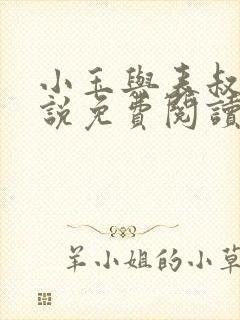 小玉與表叔
說免費閱讀
羊小姐的小草